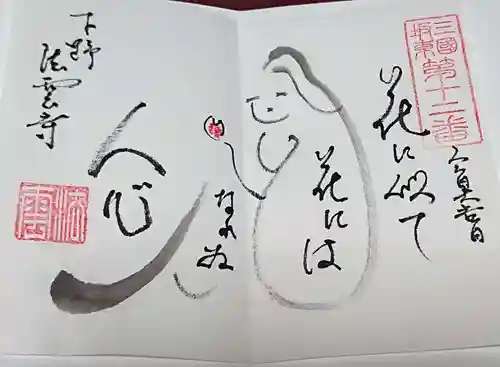 三國
坂東
第十二番
花に似て
花には
なれぬ
人心
下野
法雲寺
法雲